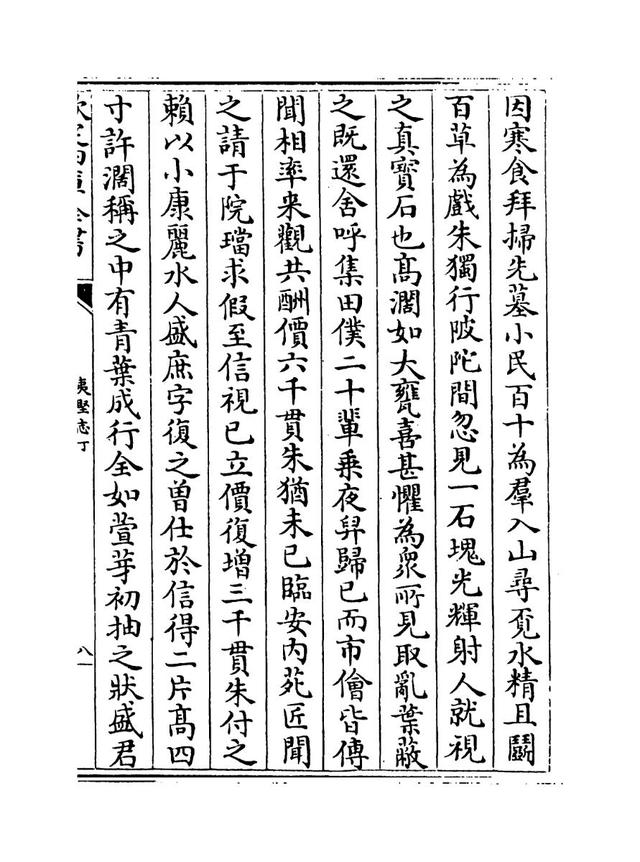 因寒食拜掃先墓小民百十為羣入山尋覔水精且鬭
百草為戲朱獨行陂陀間忽見一石塊光輝射人就視
之真寳石也髙濶如大甕喜甚懼為衆所見取亂葉蔽
之既還舍呼集田僕二十輩乗夜舁歸已而市儈皆傳
聞相率来觀共酬價六千貫朱猶未已臨安内苑匠聞
之請于院璫求假至信視已立價復増三千貫朱付之
賴以小康麗水人盛庶字復之曽仕於信得二片髙四
寸許濶稱之中有青葉成行全如萱芽初抽之狀盛君
欽定四庫全書
夷堅志丁
八